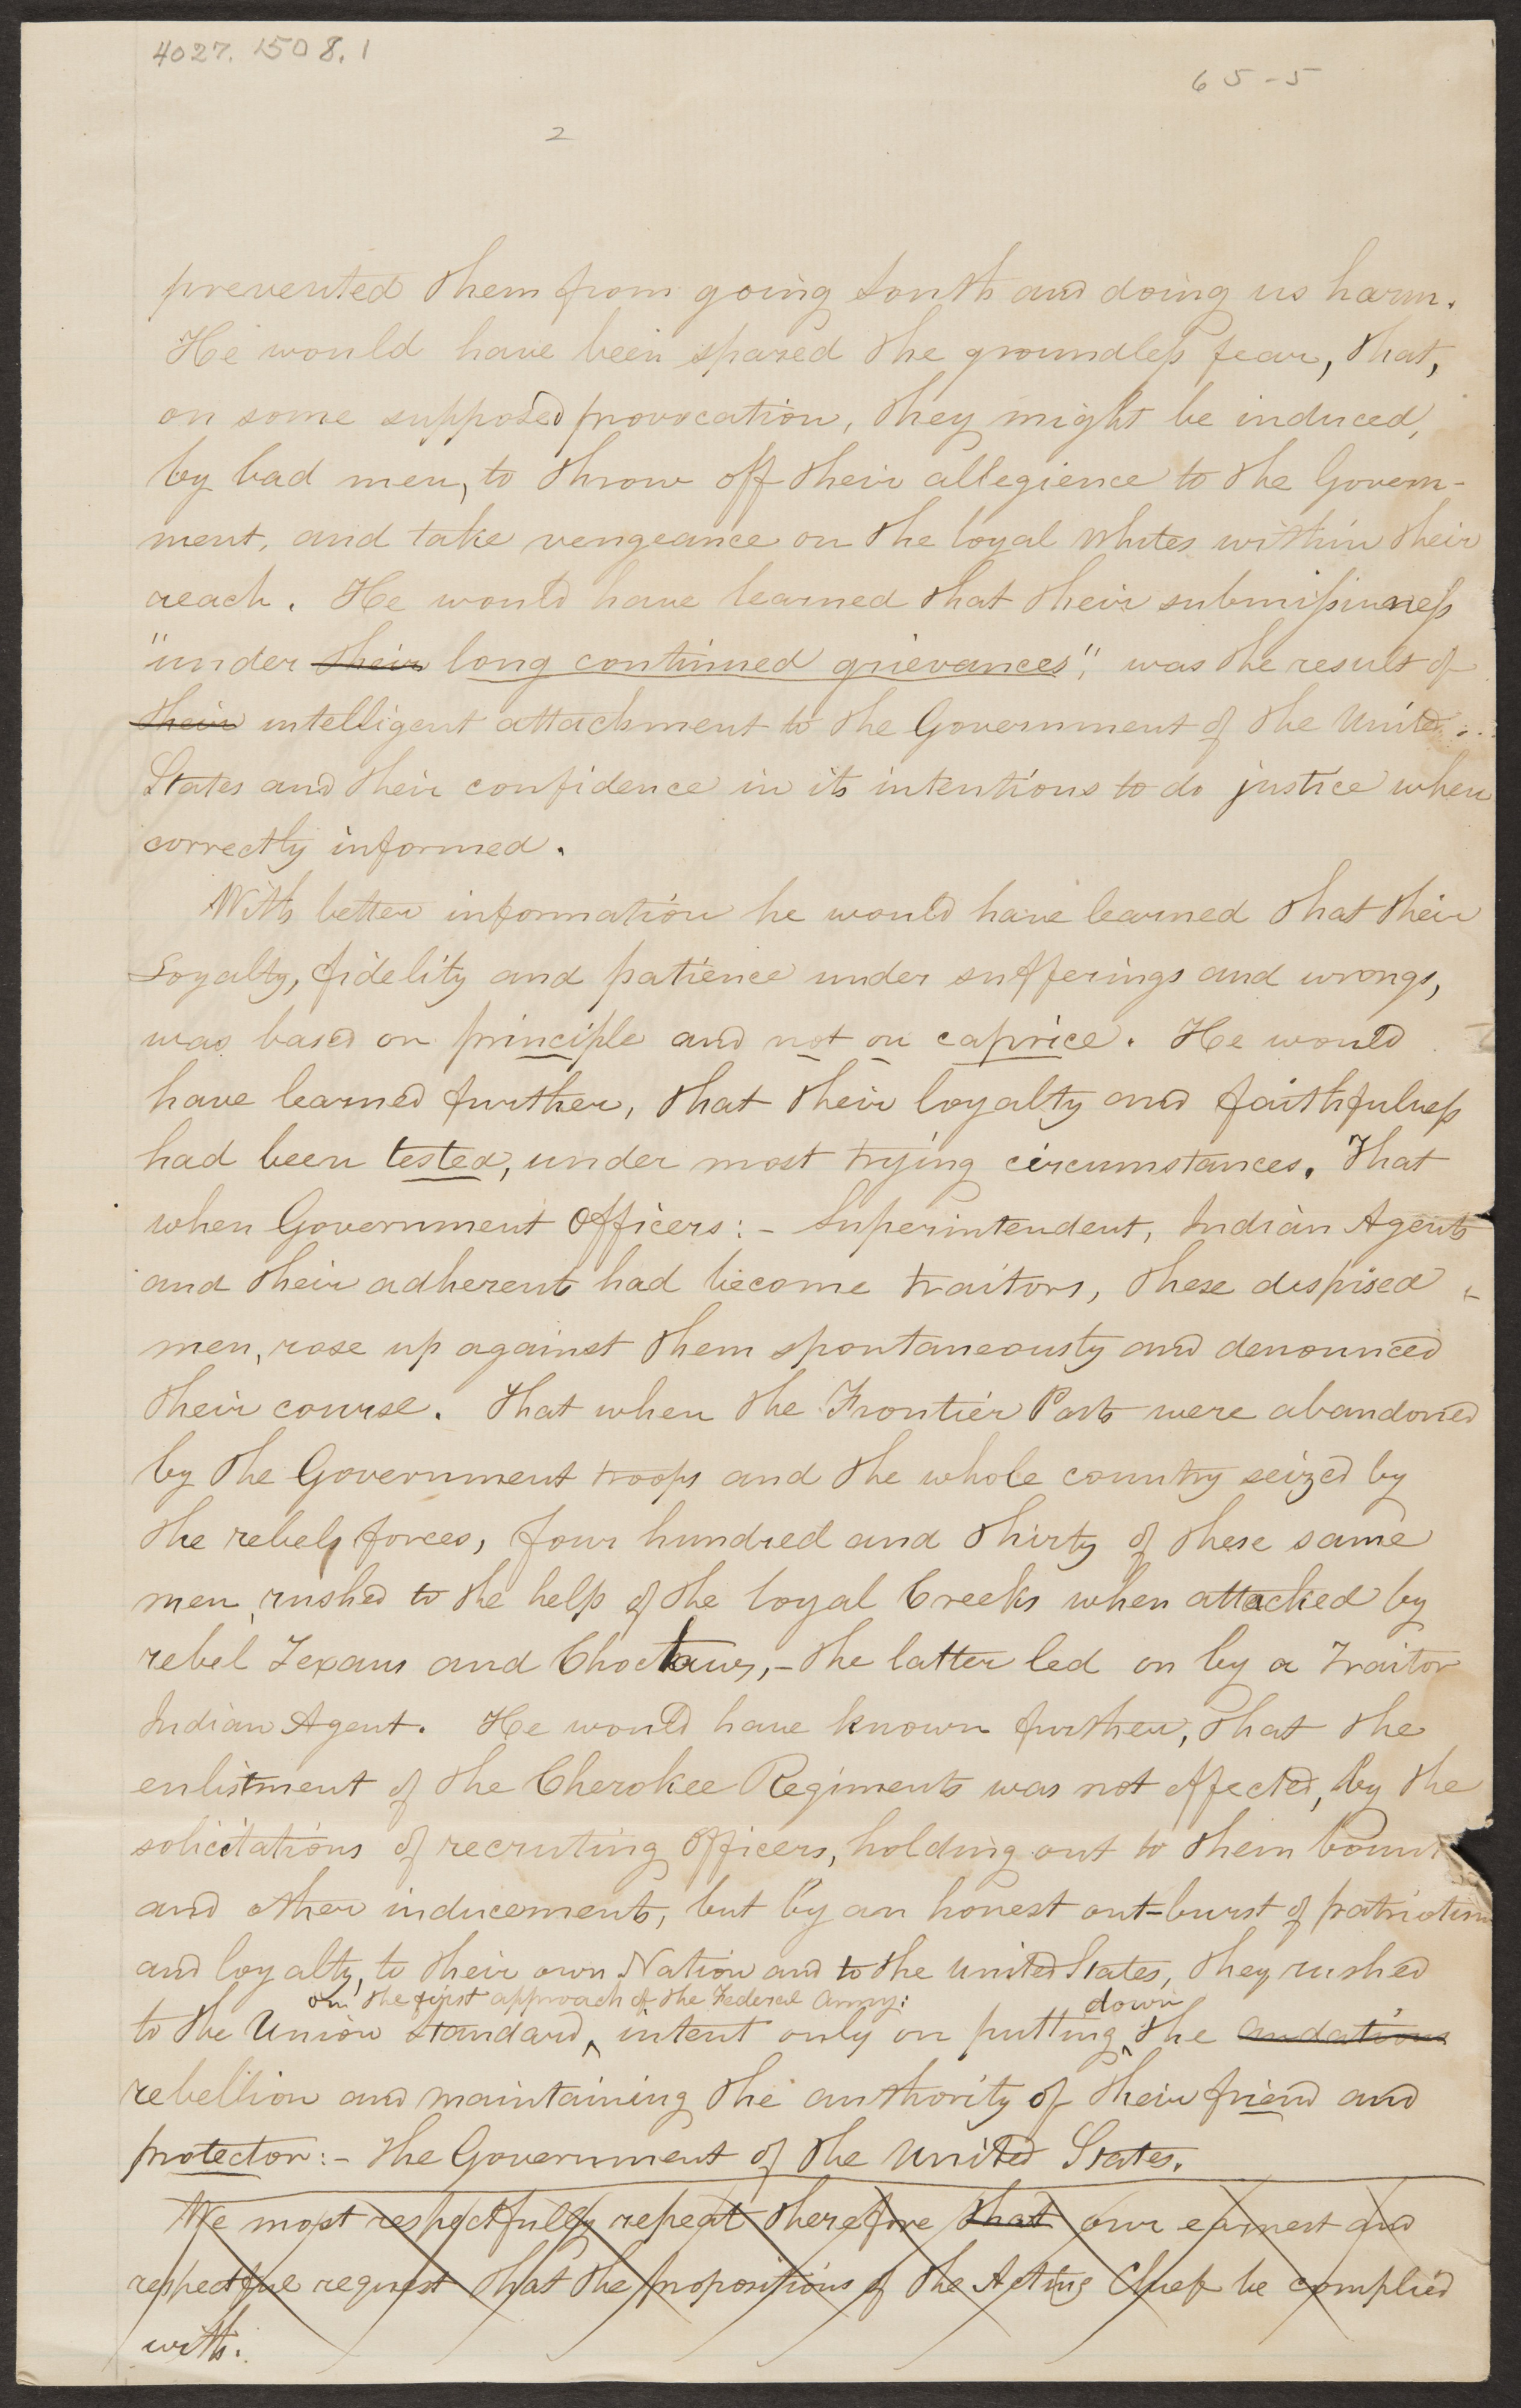 4027.1508.1
65-5
2
prevented them from going South and doing us harm.
He would have been spared the groundless fear, that,
on some supposed provocation, they might be induced,
by bad men, to throw off their allegience to the Govern-
ment, and take vengeance on the loyal whites within their
reach. He would have learned that their submissiveness
"under their long continued grievances", was the result of
their intelligent attachment to the Government of the United
States and their confidence in its intentions to do justice when
correctly informed.
With better information he would have learned that their
Loyalty, fidelity and patience under sufferings and wrongs,
was based on principle and not on caprice. He would
have learned further, that their loyalty and faithfulness
had been tested, under most trying circumstances. That
when Government Officers:- Superintendent, Indian Agents
and their adherents had become traitors, these despised
men, rose up against them spontaneously and denounced
their course. That when the Frontier Posts were abandoned
by the Government troops and the whole country seized by
the rebel forces, four hundred and thirty of these same
men, rushed to the help of the loyal Creeks when attacked by
rebel Texans and Choctaws,- the latter led on by a Traitor
Indian Agent. He would have known further, that the
enlistment of the Cherokee Regiments was not effected, by the
solicitations of recruting Officers, holding out to them
and other inducements, but by an honest out-burst of patriotism
and loyalty, to their own Nation and to the United States, they rushed
on the first approach of the Federal Army: down
to the Union Standard, intent only on putting the
rebellion and maintaining the authority of their friend and
protector:- the Government of the United States.
We most respectfully repeat therefore that our earnest and
respectful request that the propositions of the Acting Chief be complied
with.